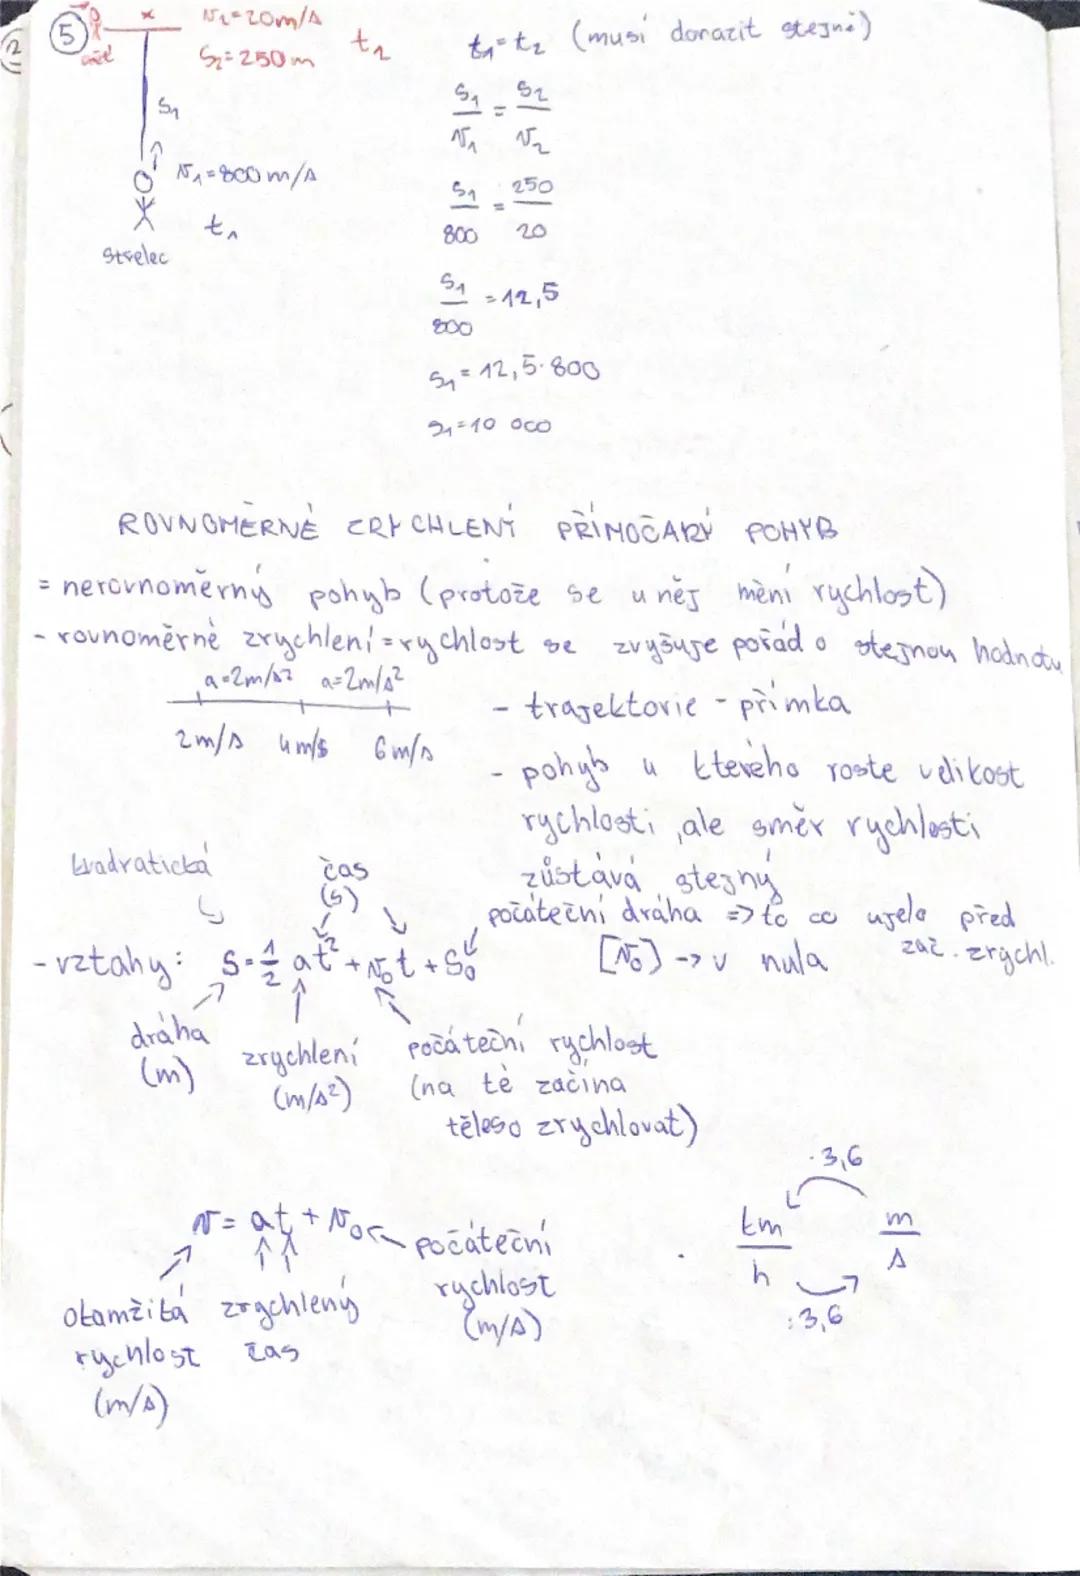 5
v₂=20m/s
s₂=250m
t₂
s₁
v₁=800m/s
t₁
střelec
t₁=t₂ (musí dorazit stejně)
s₁/v₁ = s₂/v₂
s₁/800 = 250/20
s₁/800 = 12,5
s₁ = 12,5·800
s₁=10 000
ROVNOMĚRNĚ ZRYCHLENÝ PŘÍMOČARÝ POHYB
= nerovnoměrný pohyb (protože se u něj mění rychlost)
- rovnoměrné zrychlení = rychlost se zvyšuje pořád o stejnou hodnotu
a=2m/s² a=2m/s²
2m/s 4m/s 6m/s
- trajektorie - přímka
- pohyb u kterého roste velikost
rychlosti, ale směr rychlosti
zůstává stejný
kvadratická
čas
(s)
počáteční dráha => to co ujelo před
zač. zrychl.
- vztahy: s=½at²+v₀t+s₀
[v₀] -> v nula
dráha
(m)
zrychlení
(m/s²)
počáteční rychlost
(na té začíná
těleso zrychlovat)
v = at + v₀
počáteční
rychlost
(m/s)
okamžitá
rychlost
(m/s)
zrychlený
čas
·3,6
km/h m/s
:3,6